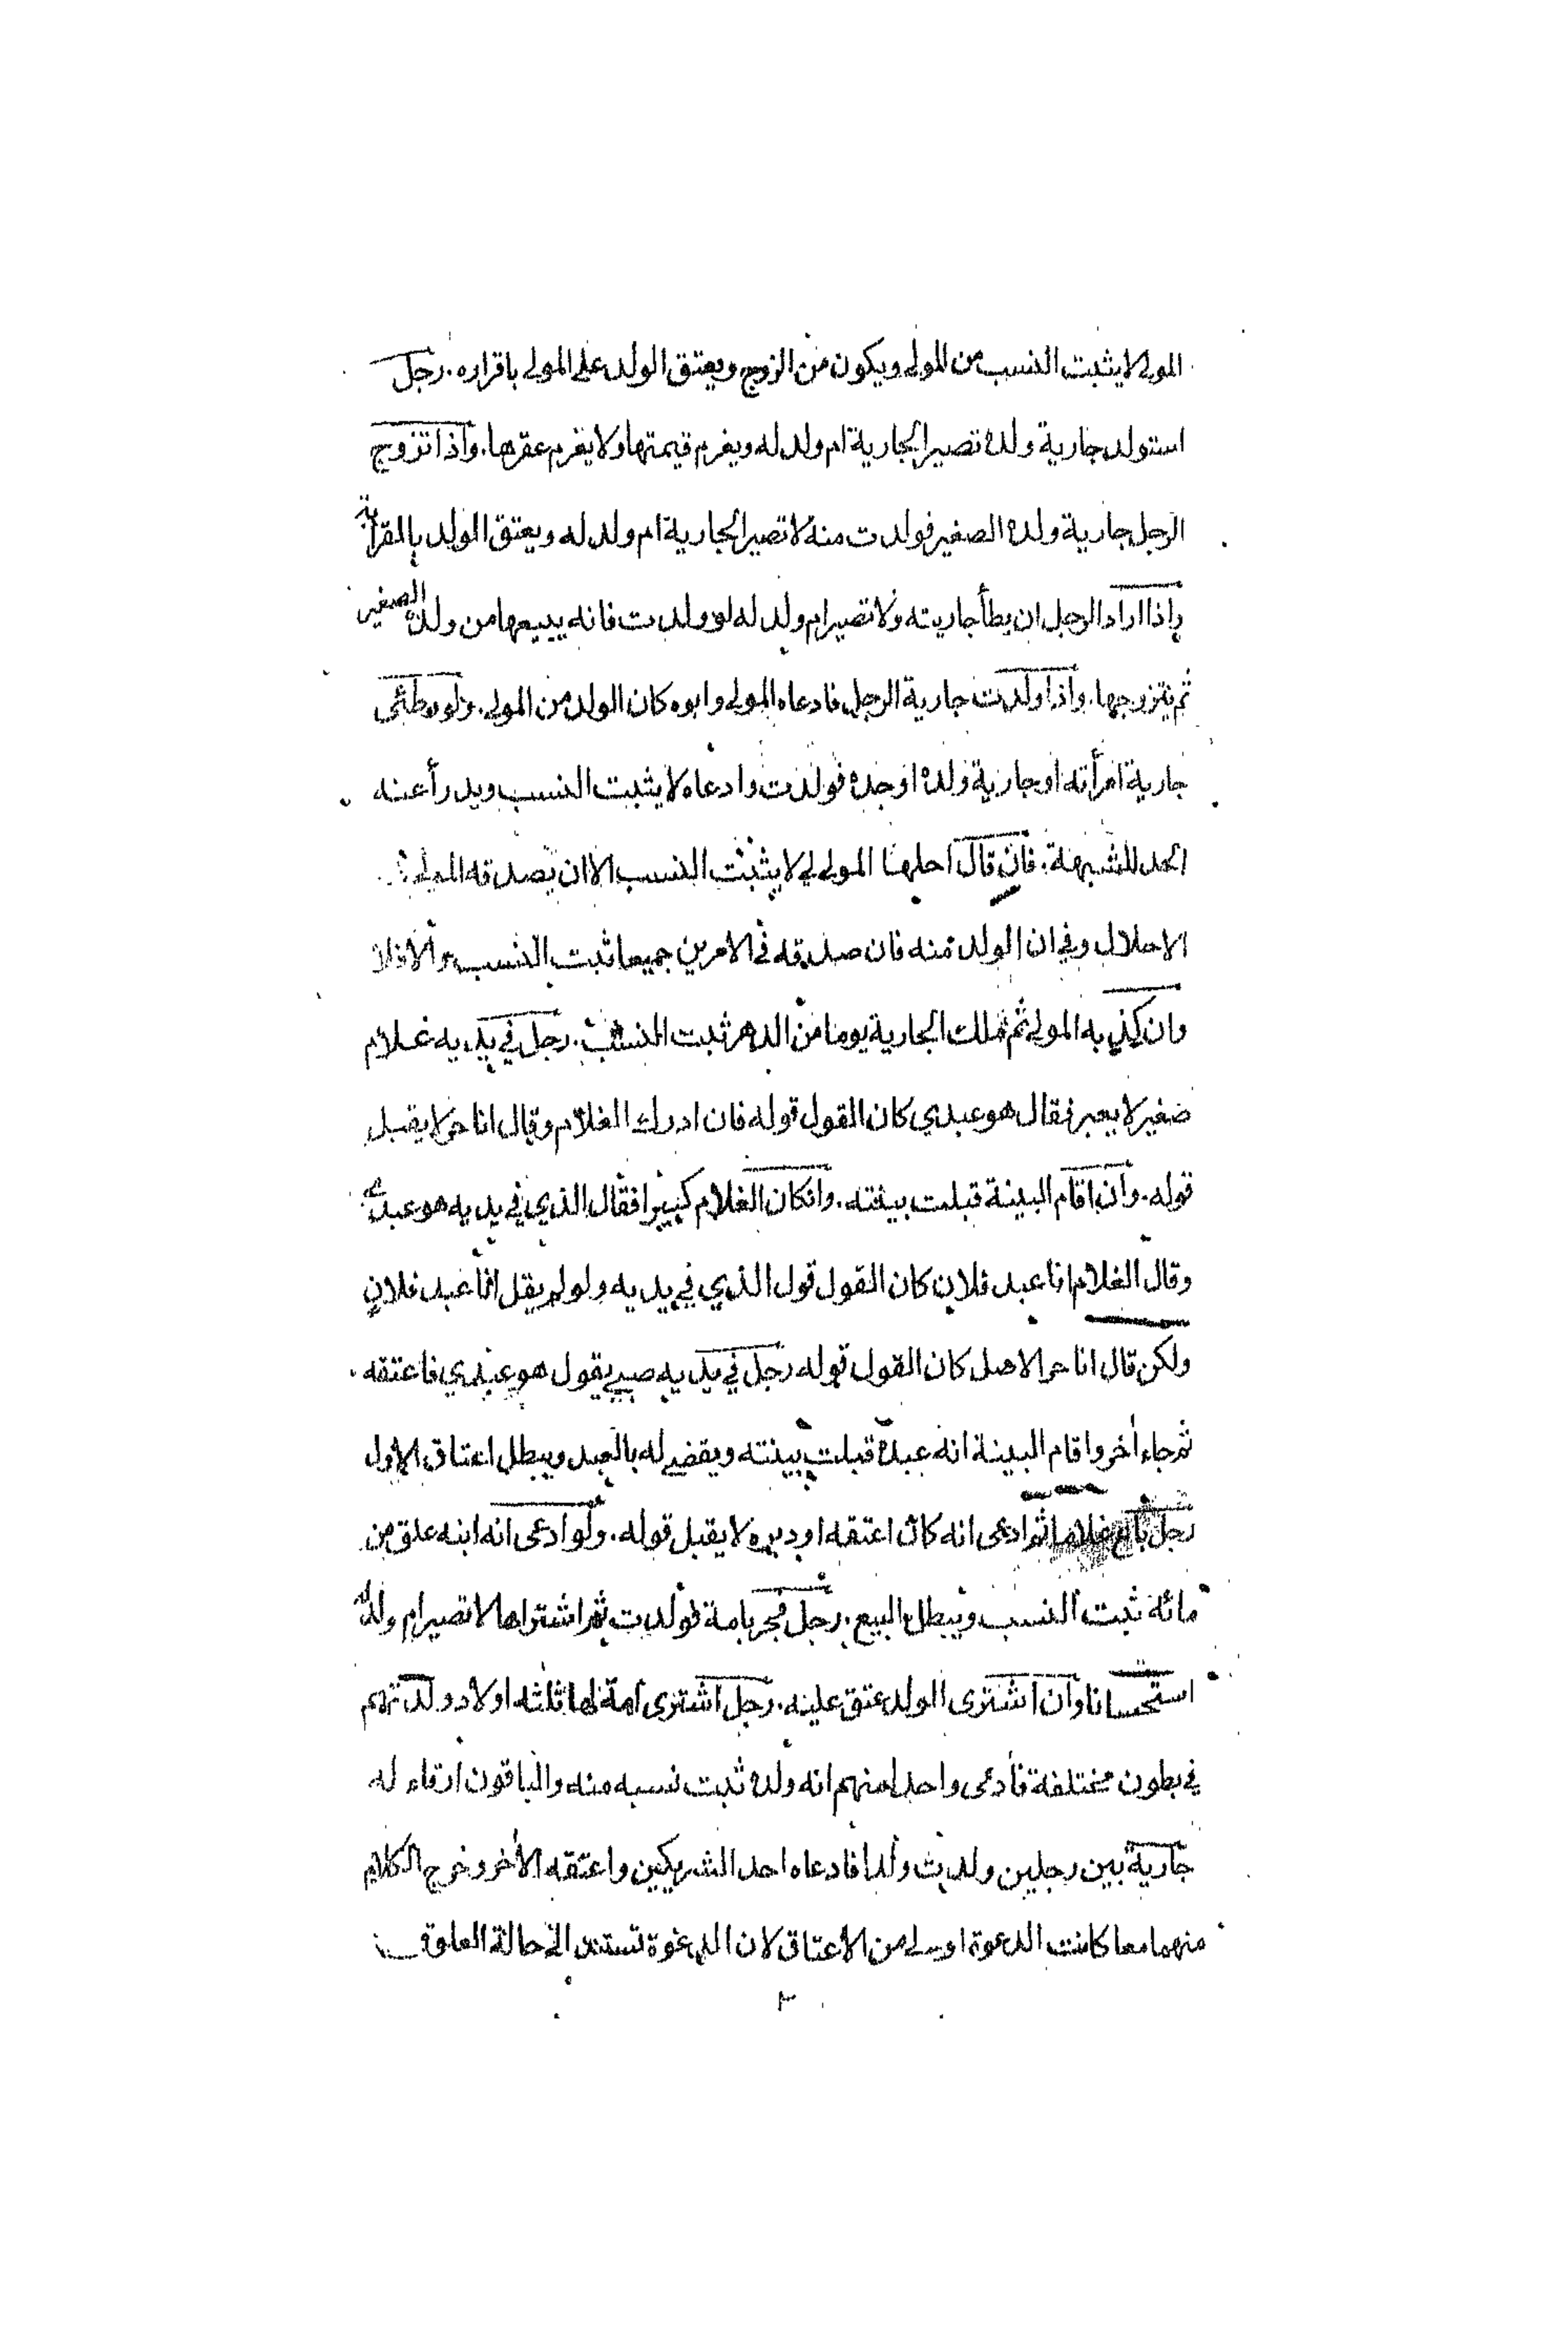 المولى لا يثبت النسب من المولى ويكون من الزوج ويعتق الولد على المولى باقراره. رجل
استولد جارية ولده تصير الجارية ام ولد له ويغرم قيمتها ولا يغرم عقرها. واذا تزوج
الرجل جارية ولده الصغير فولدت منه لا تصير الجارية ام ولد له ويعتق الولد بالقرابة
واذا اراد الرجل ان يطأ جاريته ولا تصير ام ولد له لو ولدت فانه يبيعها من ولده الصغير
ثم يتزوجها. واذا ولدت جارية الرجل فادعاه المولى وابوه كان الولد من المولى. ولو وطئ
جارية امرأته او جارية ولده او جده فولدت وادعاه لا يثبت النسب ويدرأ عنه
الحد للشبهة. فان قال احلها المولى لي لا يثبت النسب الا ان يصدقه المولى في
الاحلال وفي ان الولد منه فان صدقه في الامرين جميعا ثبت النسب والا فلا
وان كذبه المولى ثم ملك الجارية يوما من الدهر ثبت النسب. رجل في يديه غلام
صغير لا يعبر فقال هو عبدي كان القول قوله فان ادرك الغلام وقال انا حر لا يقبل
قوله. وان اقام البينة قبلت بينته. وانكان الغلام كبيرا فقال الذي في يديه هو عبدي
وقال الغلام انا عبد فلان كان القول قول الذي في يديه ولو لم يقل انا عبد فلان
ولكن قال انا حر الاصل كان القول قوله رجل في يديه صبي يقول هو عبدي فاعتقه
ثم جاء اخر واقام البينة انه عبده قبلت بينته ويقضى له بالعبد ويبطل اعتاق الاول
رجل باع غلاما ثم ادعى انه كان اعتقه او دبره لا يقبل قوله. ولو ادعى انه ابنه علق من
مائه ثبت النسب ويبطل البيع. رجل فجر بامة فولدت ثم اشتراها لا تصير ام ولد له
استحسانا وان اشترى الولد عتق عليه. رجل اشترى امة لها ثلثه اولاد ولدتهم
في بطون مختلفة فادعى واحدا منهم انه ولده ثبت نسبه منه والباقون ارقاء له
جارية بين رجلين ولدت ولدا فادعاه احد الشريكين واعتقه الأخر وخرج الكلام
منهما معا كانت الدعوة اولى من الاعتاق لان الدعوة تستند الى حالة العلوق